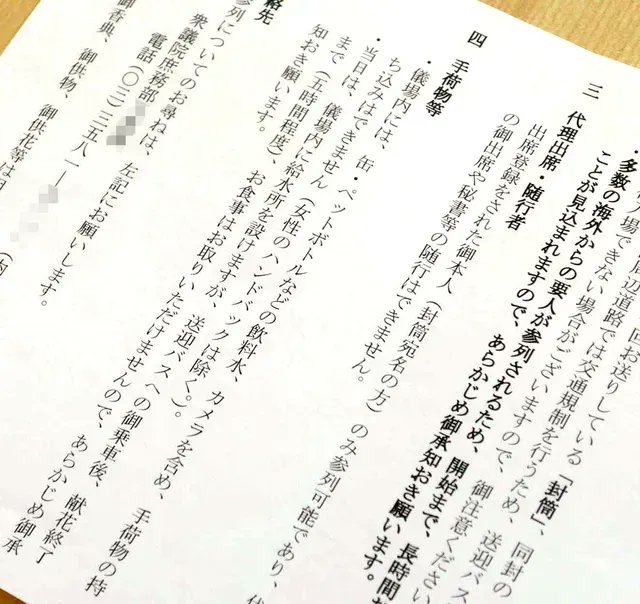 回お送りしている「封筒」、同封の
入場できない場合がございますので、御注意ください
周辺道路では交通規制を行うため、送迎バス
・多数の海外からの要人が参列されるため、開始まで、長時間
ことが見込まれますので、あらかじめ御承知おき願います。
三　代理出席・随行者
出席登録をされた御本人（封筒宛名の方）のみ参列可能であり、代
の御出席や秘書等の随行はできません。
四　手荷物等
・儀場内には、缶・ペットボトルなどの飲料水、カメラを含め、手荷物の持
ち込みはできません（女性のハンドバックは除く。）。
・当日は、儀場内に給水所を設けますが、送迎バスへの御乗車後、献花終了
まで（五時間程度）、お食事はお取りいただけませんので、あらかじめ御承
知おき願います。
絡先
参列についてのお尋ねは、左記にお願いします。
衆議院庶務部
電話（〇三）三五八一―
（内
御香典、御供物、御供花等は